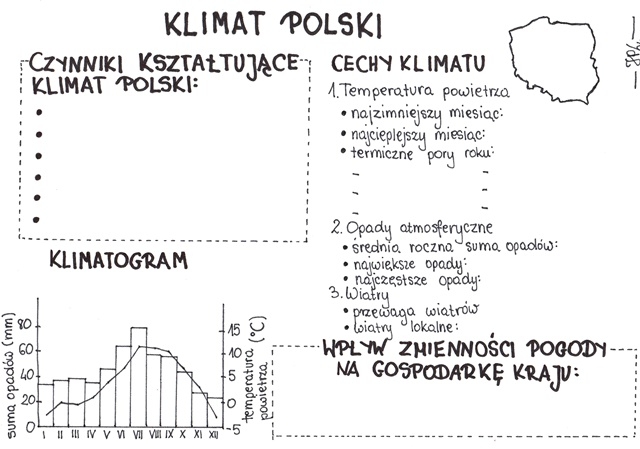 KLIMAT POLSKI
CZYNNIKI KSZTAŁTUJĄCE
KLIMAT POLSKI:
CECHY KLIMATU
1. Temperatura powietrza
• najzimniejszy miesiąc:
• najcieplejszy miesiąc:
• termiczne pory roku:
- -
- -
- -
2. Opady atmosferyczne
• średnia roczna suma opadów:
• największe opady:
• najczęstsze opady:
3. Wiatry
• przewaga wiatrów
• wiatry lokalne:
KLIMATOGRAM
suma opadów (mm)
80
60
40
20
0
15
10
5
0
-5
temperatura powietrza (°C)
I II III IV V VI VII VIII IX X XI XII
WPŁYW ZMIENNOŚCI POGODY
NA GOSPODARKĘ KRAJU: